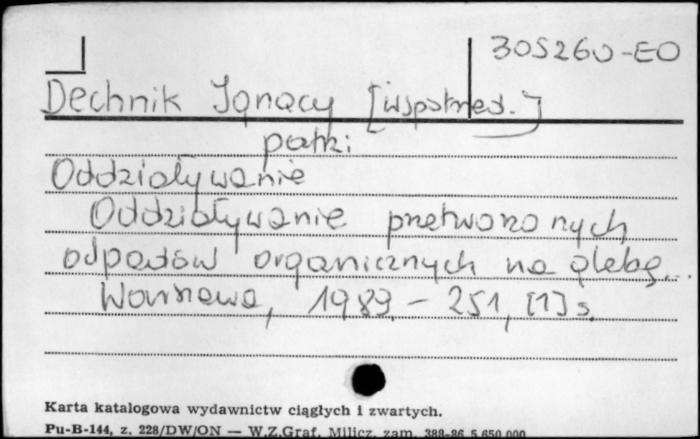 305260-EO
Dechnik Ignacy [współred.]
patrz:
Oddziaływanie
Oddziaływanie przetworzonych
odpadów organicznych na glebę...
Warszawa, 1989. - 251, [1] s.
Karta katalogowa wydawnictw ciągłych i zwartych.
Pu-B-144, z. 228/DW/ON — W.Z.Graf. Milicz, zam. 388-86 5 650 000